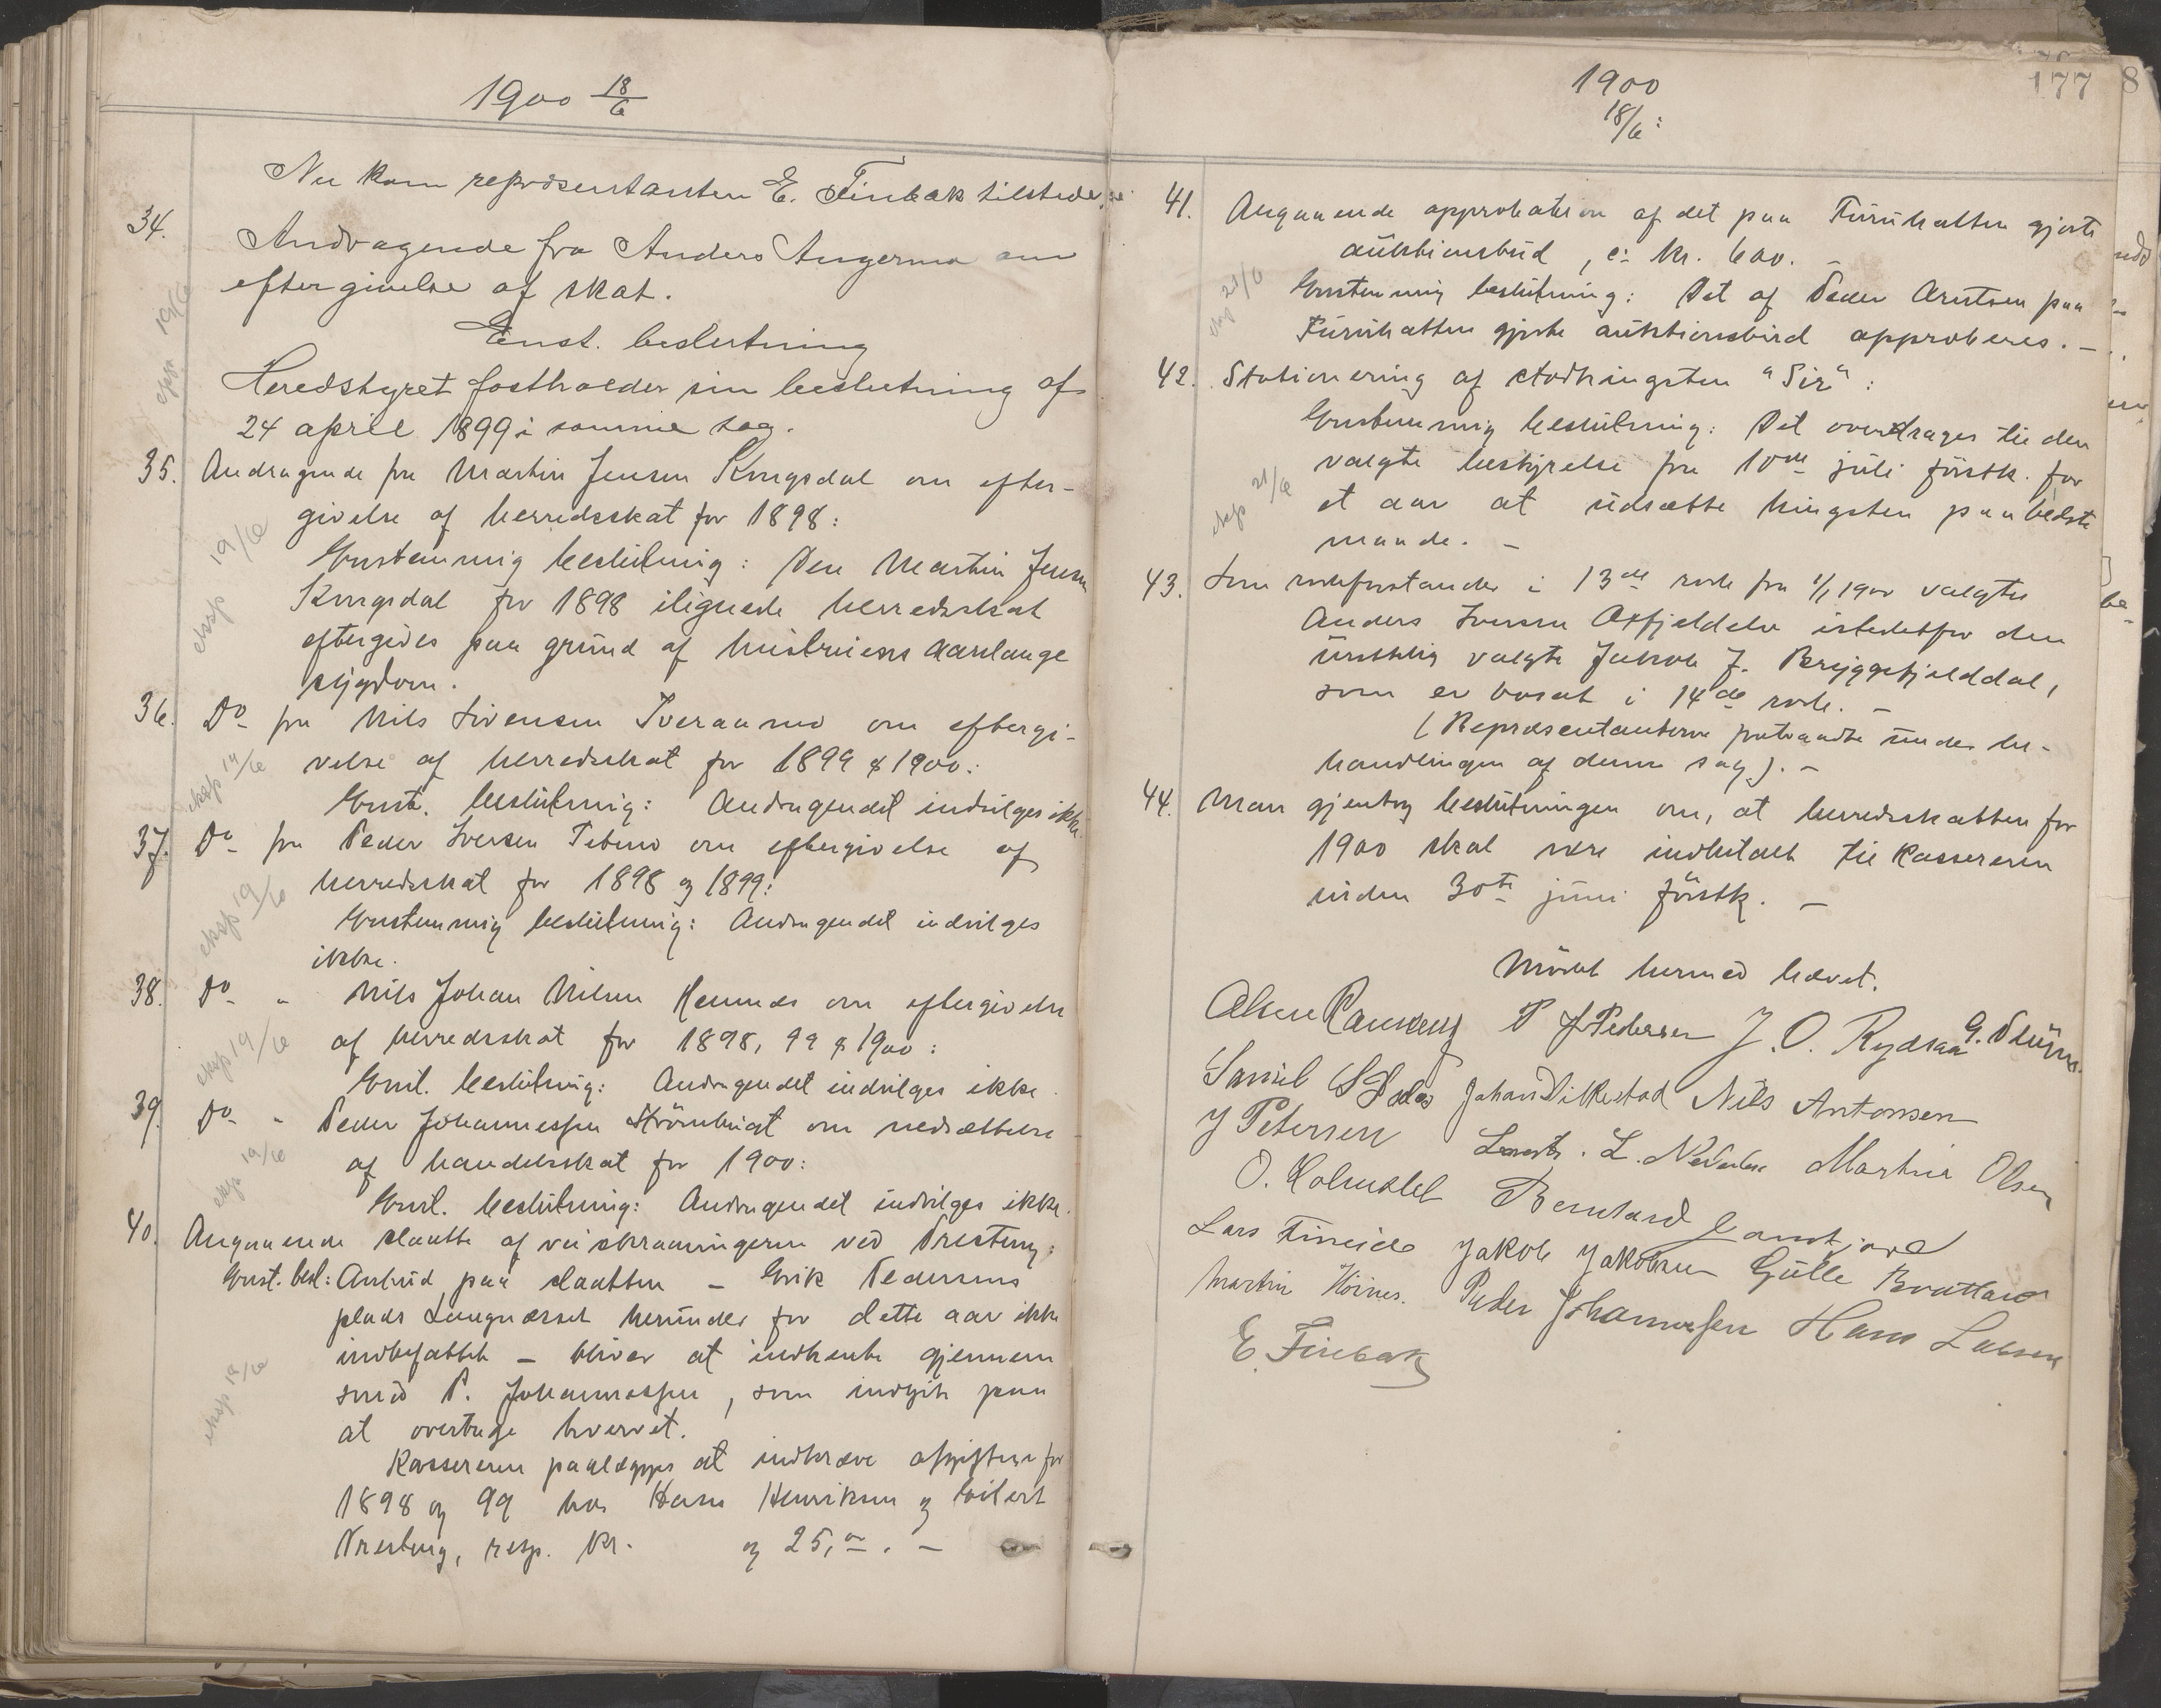 1900 18/6
Nu kom repræsentanten E. Finbak tilstede.
34. Andragende fra Anders Angermo om
eftergivelse af skat.
Enst. beslutning
Heredstyret fastholder sin beslutning af
24 april 1899 i samme sag.
eksp 19/6
35. Andragende fra Martin Jensen Kongsdal om efter-
givelse af herredsskat for 1898:
Enstemmig beslutning: Den Martin Jensen
Kongsdal for 1898 ilignede herredsskat
eftergives paa grund af hustruens aarlange
sygdom.
eksp 19/6
36. Do fra Nils Sivensen Tveraamo om eftergi-
velse af herredsskat for 1899 & 1900:
Enst. beslutning: Andragendet indvilges ikke.
eksp 19/6
37. Do fra Peder Iversen om eftergivelse af
herredsskat for 1898 og 1899:
Enstemmig beslutning: Andragendet indvilges
ikke.
eksp 19/6
38. Do " Nils Johan Nilsen Hemnes om eftergivelse
af herredsskat for 1898, 99 & 1900:
Enst. beslutning: Andragendet indvilges ikke.
eksp 19/6
39. Do " Peder Johannessen om nedsættelse
af handelsskat for 1900:
Enst. beslutning: Andragendet indvilges ikke.
eksp 19/6
40. Angaaende slaatte af veiskraaningerne ved
Enst. besl: Anbud paa slaatten - Erik Pedersens
plads Langnæsset herunder for dette aar ikke
indbefattet - bliver at indhente gjennem
smed P. Johannessen, som indgik paa
at overtage hvervet.
Kassereren paalægges at indkræve afgiften for
1898 og 99 hos Hans Henriksen og Eilert
resp. kr. og 25,00. -
eksp 19/6
177
1900
18/6:
41. Angaaende approbation af det paa Furuhatten gjorte
auktionsbud, c: kr. 600. -
Enstemmig beslutning: Det af Peder Arntsen paa
Furuhatten gjorte auktionsbud approberes. -
eksp 21/6
42. Stationering af stodhingsten "Sir":
Enstemmig beslutning: Det overdrages til den
valgte bestyrelse fra 10de juli førstk. for
et aar at udsætte hingsten paa bedste
maade. -
eksp 21/6
43. Som rodeforstander i 13de rode fra 1/1 1900 valgtes
Anders Iversen Oxfjeldelv istedetfor den
urettelig valgte Jakob J. Bryggefjelddal,
som er bosat i 14de rode. -
(Repræsentanterne fratraadte under be-
handlingen af denne sag). -
44. Man gjentog beslutningen om, at herredsskatten for
1900 skal være indbetalt til Kassereren
inden 30te juni førstk. -
Mødet hermed hævet.
P J Pedersen J. O. Rydsaa
Johan Dilkestad Nils Antonsen
J Petersen Martin Olsen
O. Holmslet Bernhard
Lars Fineide Jakob Jakobsen Gulle Brattland
Martin Høines. Peder Johannessen Hans
E. Finbak